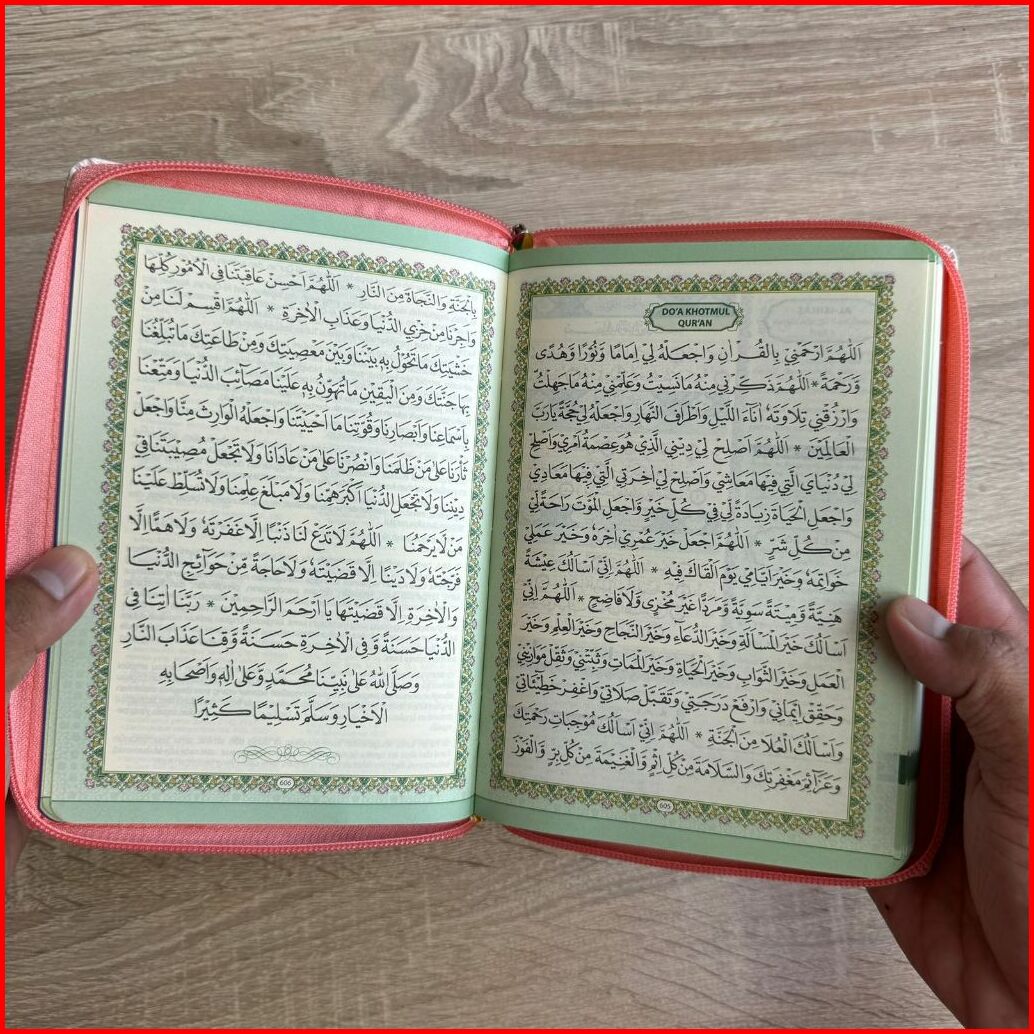 DO'A KHOTMUL
QUR'AN
اَللّٰهُمَّ ارْحَمْنِيْ بِالْقُرْاٰنِ وَاجْعَلْهُ لِيْ اِمَامًا وَّنُوْرًا وَّهُدًى
وَّرَحْمَةً * اَللّٰهُمَّ ذَكِّرْنِيْ مِنْهُ مَانَسِيْتُ وَعَلِّمْنِيْ مِنْهُ مَاجَهِلْتُ
وَارْزُقْنِيْ تِلَاوَتَهٗ اٰنَاءَ اللَّيْلِ وَاَطْرَافَ النَّهَارِ وَاجْعَلْهُ لِيْ حُجَّةً يَارَبَّ
الْعَالَمِيْنَ * اَللّٰهُمَّ اَصْلِحْ لِيْ دِيْنِي الَّذِيْ هُوَ عِصْمَةُ اَمْرِيْ وَاَصْلِحْ
لِيْ دُنْيَايَ الَّتِيْ فِيْهَا مَعَاشِيْ وَاَصْلِحْ لِيْ اٰخِرَتِي الَّتِيْ فِيْهَا مَعَادِيْ
وَاجْعَلِ الْحَيَاةَ زِيَادَةً لِّيْ فِيْ كُلِّ خَيْرٍ وَّاجْعَلِ الْمَوْتَ رَاحَةً لِّيْ
مِنْ كُلِّ شَرٍّ * اَللّٰهُمَّ اجْعَلْ خَيْرَ عُمْرِيْ اٰخِرَهٗ وَخَيْرَ عَمَلِيْ
خَوَاتِمَهٗ وَخَيْرَ اَيَّامِيْ يَوْمَ اَلْقَاكَ فِيْهِ * اَللّٰهُمَّ اِنِّيْ اَسْاَلُكَ عِيْشَةً
هَنِيَّةً وَّمِيْتَةً سَوِيَّةً وَّمَرَدًّا غَيْرَ مُخْزِيٍ وَّلَا فَاضِحٍ * اَللّٰهُمَّ اِنِّيْ
اَسْاَلُكَ خَيْرَ الْمَسْاَلَةِ وَخَيْرَ الدُّعَاءِ وَخَيْرَ النَّجَاحِ وَخَيْرَ الْعِلْمِ وَخَيْرَ
الْعَمَلِ وَخَيْرَ الثَّوَابِ وَخَيْرَ الْحَيَاةِ وَخَيْرَ الْمَمَاتِ وَثَبِّتْنِيْ وَثَقِّلْ مَوَازِيْنِيْ
وَحَقِّقْ اِيْمَانِيْ وَارْفَعْ دَرَجَتِيْ وَتَقَبَّلْ صَلَاتِيْ وَاغْفِرْ خَطِيْئَاتِيْ
وَاَسْاَلُكَ الْعُلَا مِنَ الْجَنَّةِ * اَللّٰهُمَّ اِنِّيْ اَسْاَلُكَ مُوْجِبَاتِ رَحْمَتِكَ
وَعَزَائِمَ مَغْفِرَتِكَ وَالسَّلَامَةَ مِنْ كُلِّ اِثْمٍ وَّالْغَنِيْمَةَ مِنْ كُلِّ بِرٍّ وَّالْفَوْزَ
605
بِالْجَنَّةِ وَالنَّجَاةَ مِنَ النَّارِ * اَللّٰهُمَّ اَحْسِنْ عَاقِبَتَنَا فِى الْاُمُوْرِ كُلِّهَا
وَاَجِرْنَا مِنْ خِزْيِ الدُّنْيَا وَعَذَابِ الْاٰخِرَةِ * اَللّٰهُمَّ اقْسِمْ لَنَا مِنْ
خَشْيَتِكَ مَاتَحُوْلُ بِهٖ بَيْنَنَا وَبَيْنَ مَعْصِيَتِكَ وَمِنْ طَاعَتِكَ مَاتُبَلِّغُنَا
بِهَا جَنَّتَكَ وَمِنَ الْيَقِيْنِ مَاتُهَوِّنُ بِهٖ عَلَيْنَا مَصَآئِبَ الدُّنْيَا وَمَتِّعْنَا
بِاَسْمَاعِنَا وَاَبْصَارِنَا وَقُوَّتِنَا مَا اَحْيَيْتَنَا وَاجْعَلْهُ الْوَارِثَ مِنَّا وَاجْعَلْ
ثَأْرَنَا عَلٰى مَنْ ظَلَمَنَا وَانْصُرْنَا عَلٰى مَنْ عَادَانَا وَلَا تَجْعَلْ مُصِيْبَتَنَا فِيْ
دِيْنِنَا وَلَا تَجْعَلِ الدُّنْيَا اَكْبَرَ هَمِّنَا وَلَا مَبْلَغَ عِلْمِنَا وَلَا تُسَلِّطْ عَلَيْنَا
مَنْ لَّا يَرْحَمُنَا * اَللّٰهُمَّ لَا تَدَعْ لَنَا ذَنْبًا اِلَّا غَفَرْتَهٗ وَلَا هَمًّا اِلَّا
فَرَّجْتَهٗ وَلَا دَيْنًا اِلَّا قَضَيْتَهٗ وَلَا حَاجَةً مِّنْ حَوَآئِجِ الدُّنْيَا
وَالْاٰخِرَةِ اِلَّا قَضَيْتَهَا يَا اَرْحَمَ الرَّاحِمِيْنَ * رَبَّنَا اٰتِنَا فِى
الدُّنْيَا حَسَنَةً وَّفِى الْاٰخِرَةِ حَسَنَةً وَّقِنَا عَذَابَ النَّارِ
وَصَلَّى اللّٰهُ عَلٰى نَبِيِّنَا مُحَمَّدٍ وَّعَلٰى اٰلِهٖ وَاَصْحَابِهِ
الْاَخْيَارِ وَسَلَّمَ تَسْلِيْمًا كَثِيْرًا
606